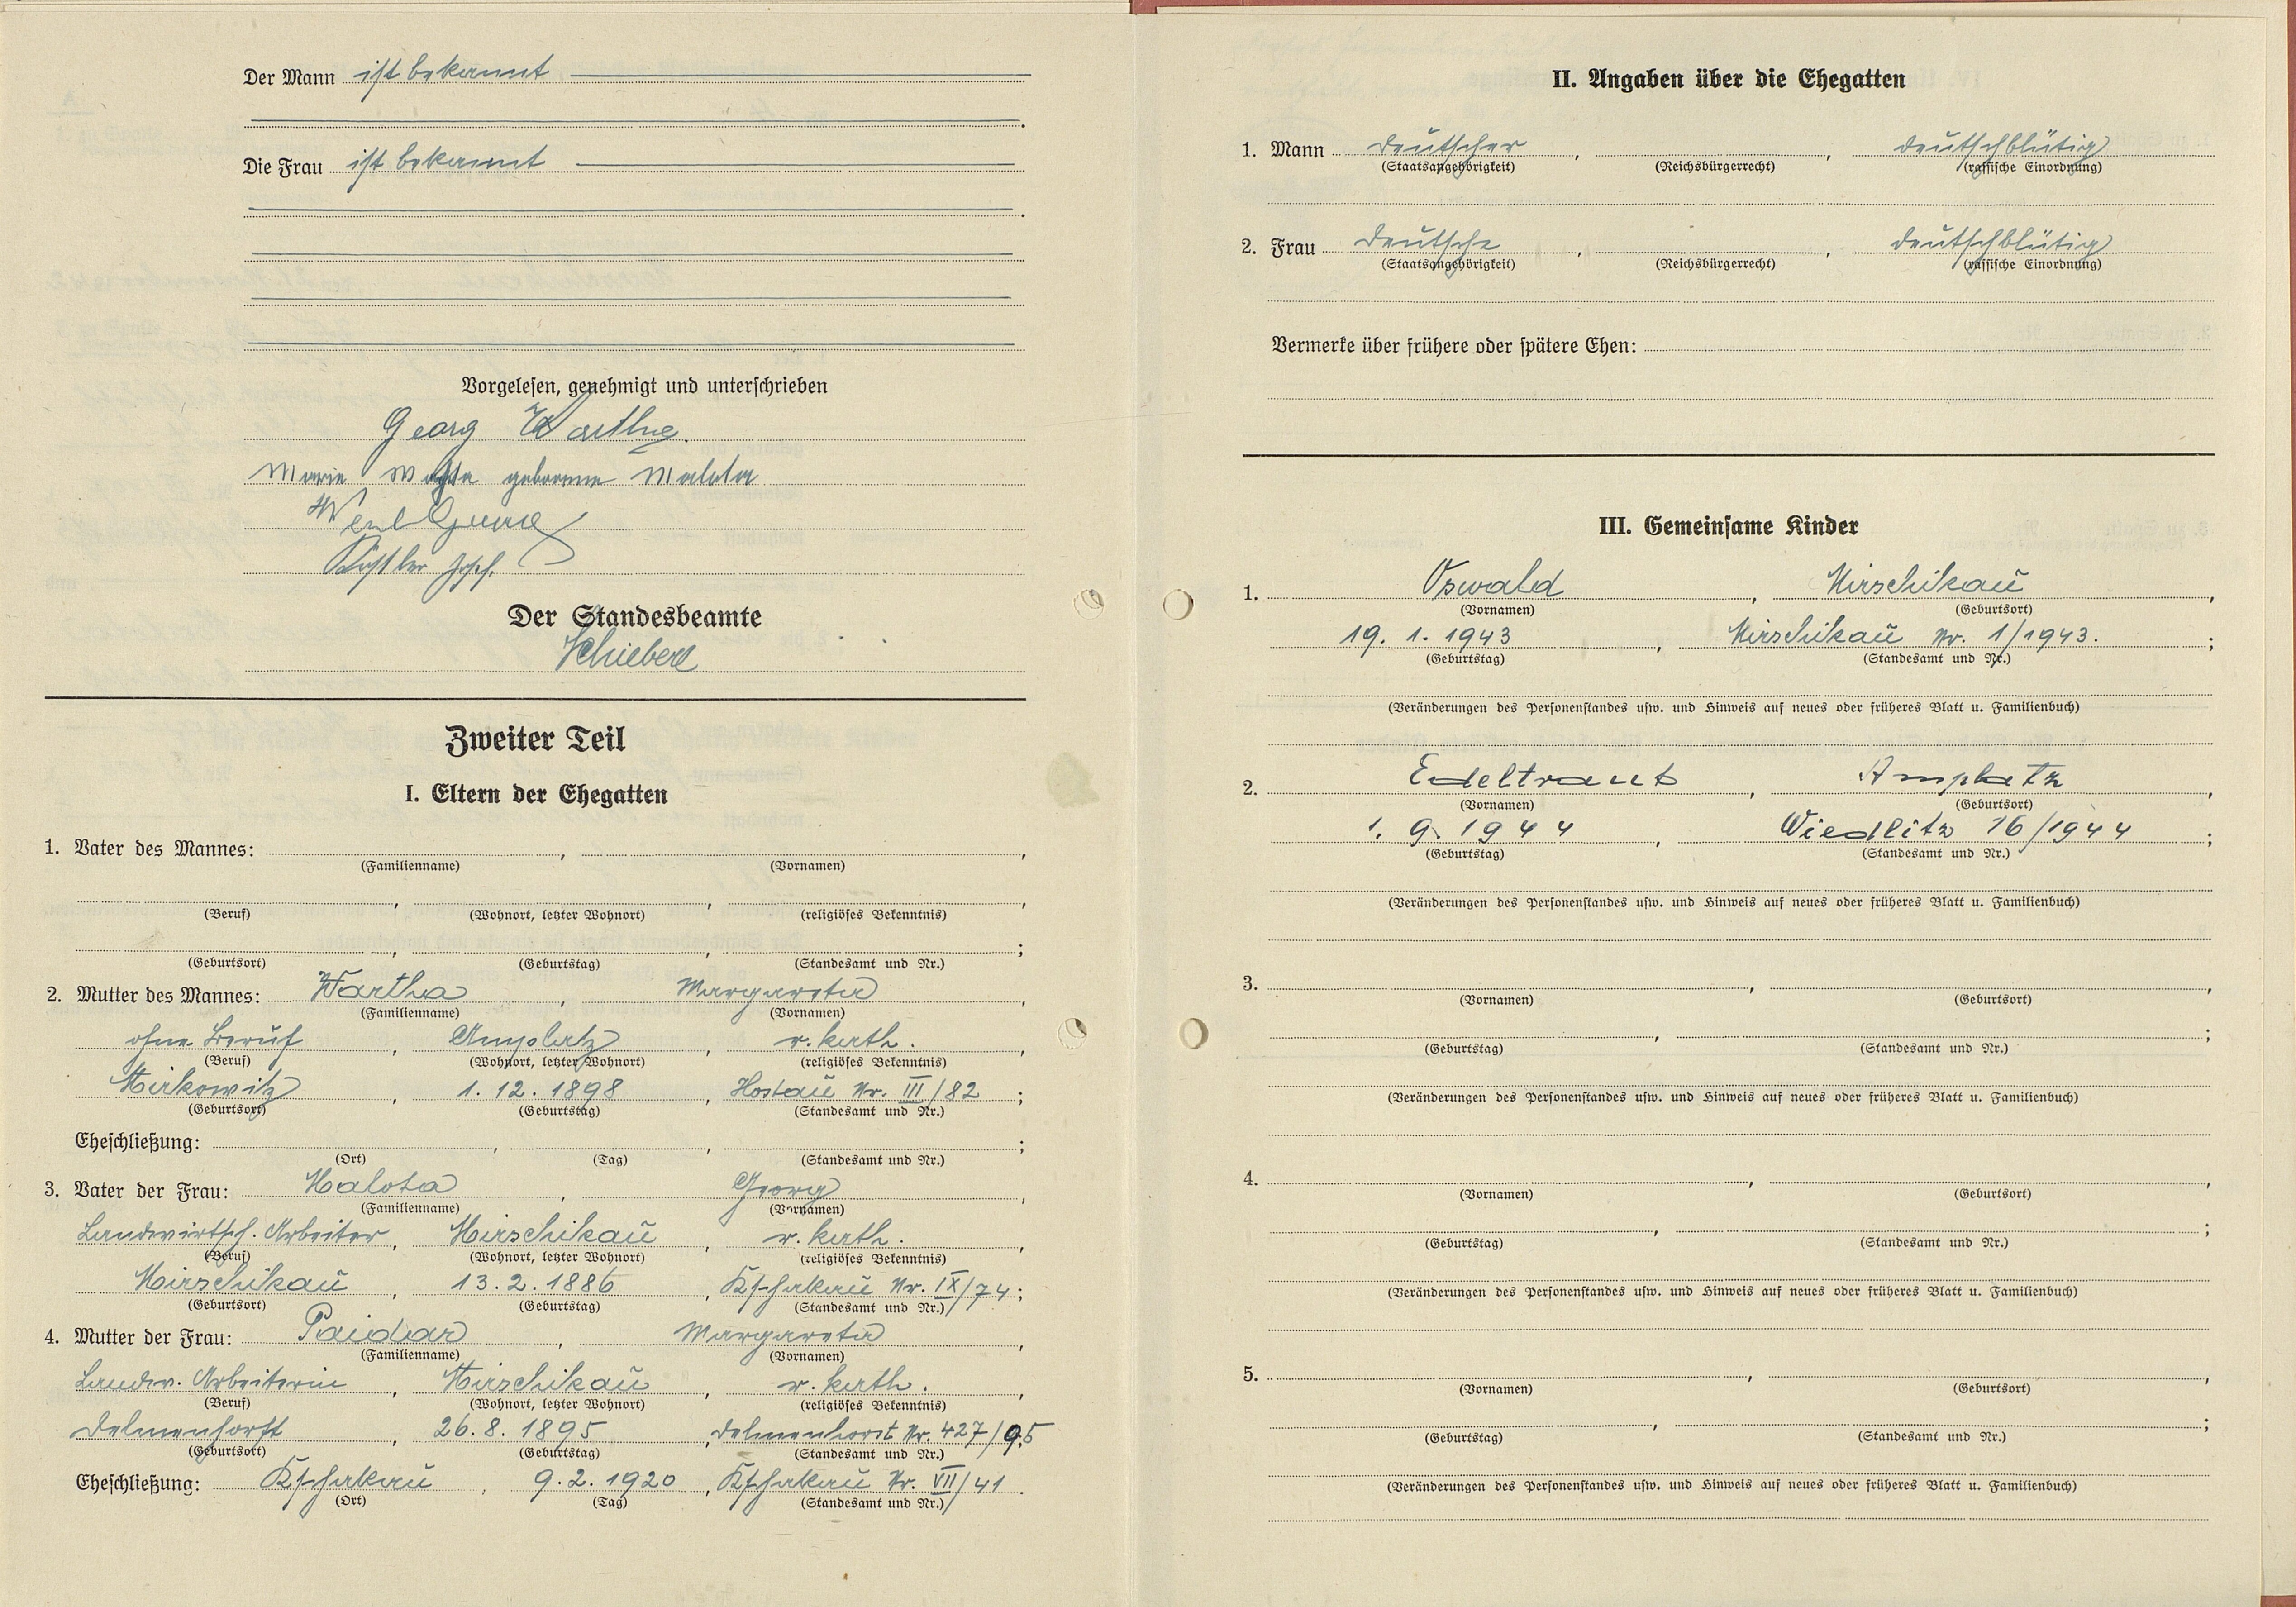 Der Mann ist bekannt
Die Frau ist bekannt
Vorgelesen, genehmigt und unterschrieben
Georg Wartha
Marie Wartha geborene Malota
Köstler Josef.
Der Standesbeamte
Schieberl
Zweiter Teil
I. Eltern der Ehegatten
1. Vater des Mannes: , ,
(Familienname) (Vornamen)
, , ,
(Beruf) (Wohnort, letzter Wohnort) (religiöses Bekenntnis)
, , ;
(Geburtsort) (Geburtstag) (Standesamt und Nr.)
2. Mutter des Mannes: Wartha , Margareta ,
(Familienname) (Vornamen)
ohne Beruf , Amplatz , r. kath. ,
(Beruf) (Wohnort, letzter Wohnort) (religiöses Bekenntnis)
Mirkowitz , 1. 12. 1898 , Hostau Nr. III/82 ;
(Geburtsort) (Geburtstag) (Standesamt und Nr.)
Eheschließung: , , ;
(Ort) (Tag) (Standesamt und Nr.)
3. Vater der Frau: Malota , Georg ,
(Familienname) (Vornamen)
Landwirtsch. Arbeiter , Mirschikau , r. kath. ,
(Beruf) (Wohnort, letzter Wohnort) (religiöses Bekenntnis)
Mirschikau , 13. 2. 1886 , Nr. IX/74 ;
(Geburtsort) (Geburtstag) (Standesamt und Nr.)
4. Mutter der Frau: Paidar , Margareta ,
(Familienname) (Vornamen)
Landw. Arbeiterin , Mirschikau , r. kath. ,
(Beruf) (Wohnort, letzter Wohnort) (religiöses Bekenntnis)
Delmenhorst , 26. 8. 1895 , Delmenhorst Nr. 427/95
(Geburtsort) (Geburtstag) (Standesamt und Nr.)
Eheschließung: , 9. 2. 1920 , Nr. VII/41 .
(Ort) (Tag) (Standesamt und Nr.)
II. Angaben über die Ehegatten
1. Mann Deutscher , , deutschblütig
(Staatsangehörigkeit) (Reichsbürgerrecht) (rassische Einordnung)
2. Frau Deutsche , , deutschblütig
(Staatsangehörigkeit) (Reichsbürgerrecht) (rassische Einordnung)
Vermerke über frühere oder spätere Ehen:
III. Gemeinsame Kinder
1. Oswald , Mirschikau ,
(Vornamen) (Geburtsort)
19. 1. 1943 , Mirschikau Nr. 1/1943. ;
(Geburtstag) (Standesamt und Nr.)
(Veränderungen des Personenstandes usw. und Hinweis auf neues oder früheres Blatt u. Familienbuch)
2. Edeltraut , Amplatz ,
(Vornamen) (Geburtsort)
1. 9. 1944 , Wiedlitz 16/1944 ;
(Geburtstag) (Standesamt und Nr.)
(Veränderungen des Personenstandes usw. und Hinweis auf neues oder früheres Blatt u. Familienbuch)
3. , ,
(Vornamen) (Geburtsort)
, ;
(Geburtstag) (Standesamt und Nr.)
(Veränderungen des Personenstandes usw. und Hinweis auf neues oder früheres Blatt u. Familienbuch)
4. , ,
(Vornamen) (Geburtsort)
, ;
(Geburtstag) (Standesamt und Nr.)
(Veränderungen des Personenstandes usw. und Hinweis auf neues oder früheres Blatt u. Familienbuch)
5. , ,
(Vornamen) (Geburtsort)
, ;
(Geburtstag) (Standesamt und Nr.)
(Veränderungen des Personenstandes usw. und Hinweis auf neues oder früheres Blatt u. Familienbuch)